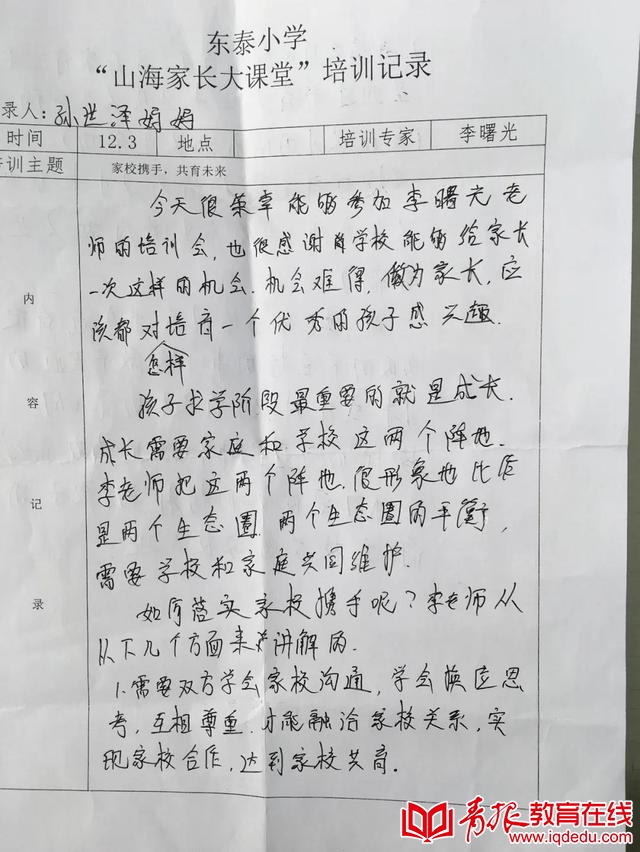 东泰小学
“山海家长大课堂”培训记录
录人：孙世泽妈妈
时间 12.3 地点 培训专家 李曙光
培训主题 家校携手，共育未来
内容记录
今天很荣幸能够参加李曙光老
师的培训会，也很感谢学校能够给家长
一次这样的机会.机会难得,做为家长,应
该都对怎样培育一个优秀的孩子感兴趣.
孩子求学阶段最重要的就是成长.
成长需要家庭和学校这两个阵地.
李老师把这两个阵地.很形象地比作
是两个生态圈.两个生态圈的平衡,
需要学校和家庭共同维护.
如何落实家校携手呢?李老师从
从下几个方面来讲解的.
1.需要双方学会家校沟通,学会换位思
考,互相尊重.才能融洽家校关系,实
现家校合作,达到家校共育.
青报教育在线
www.iqdedu.com